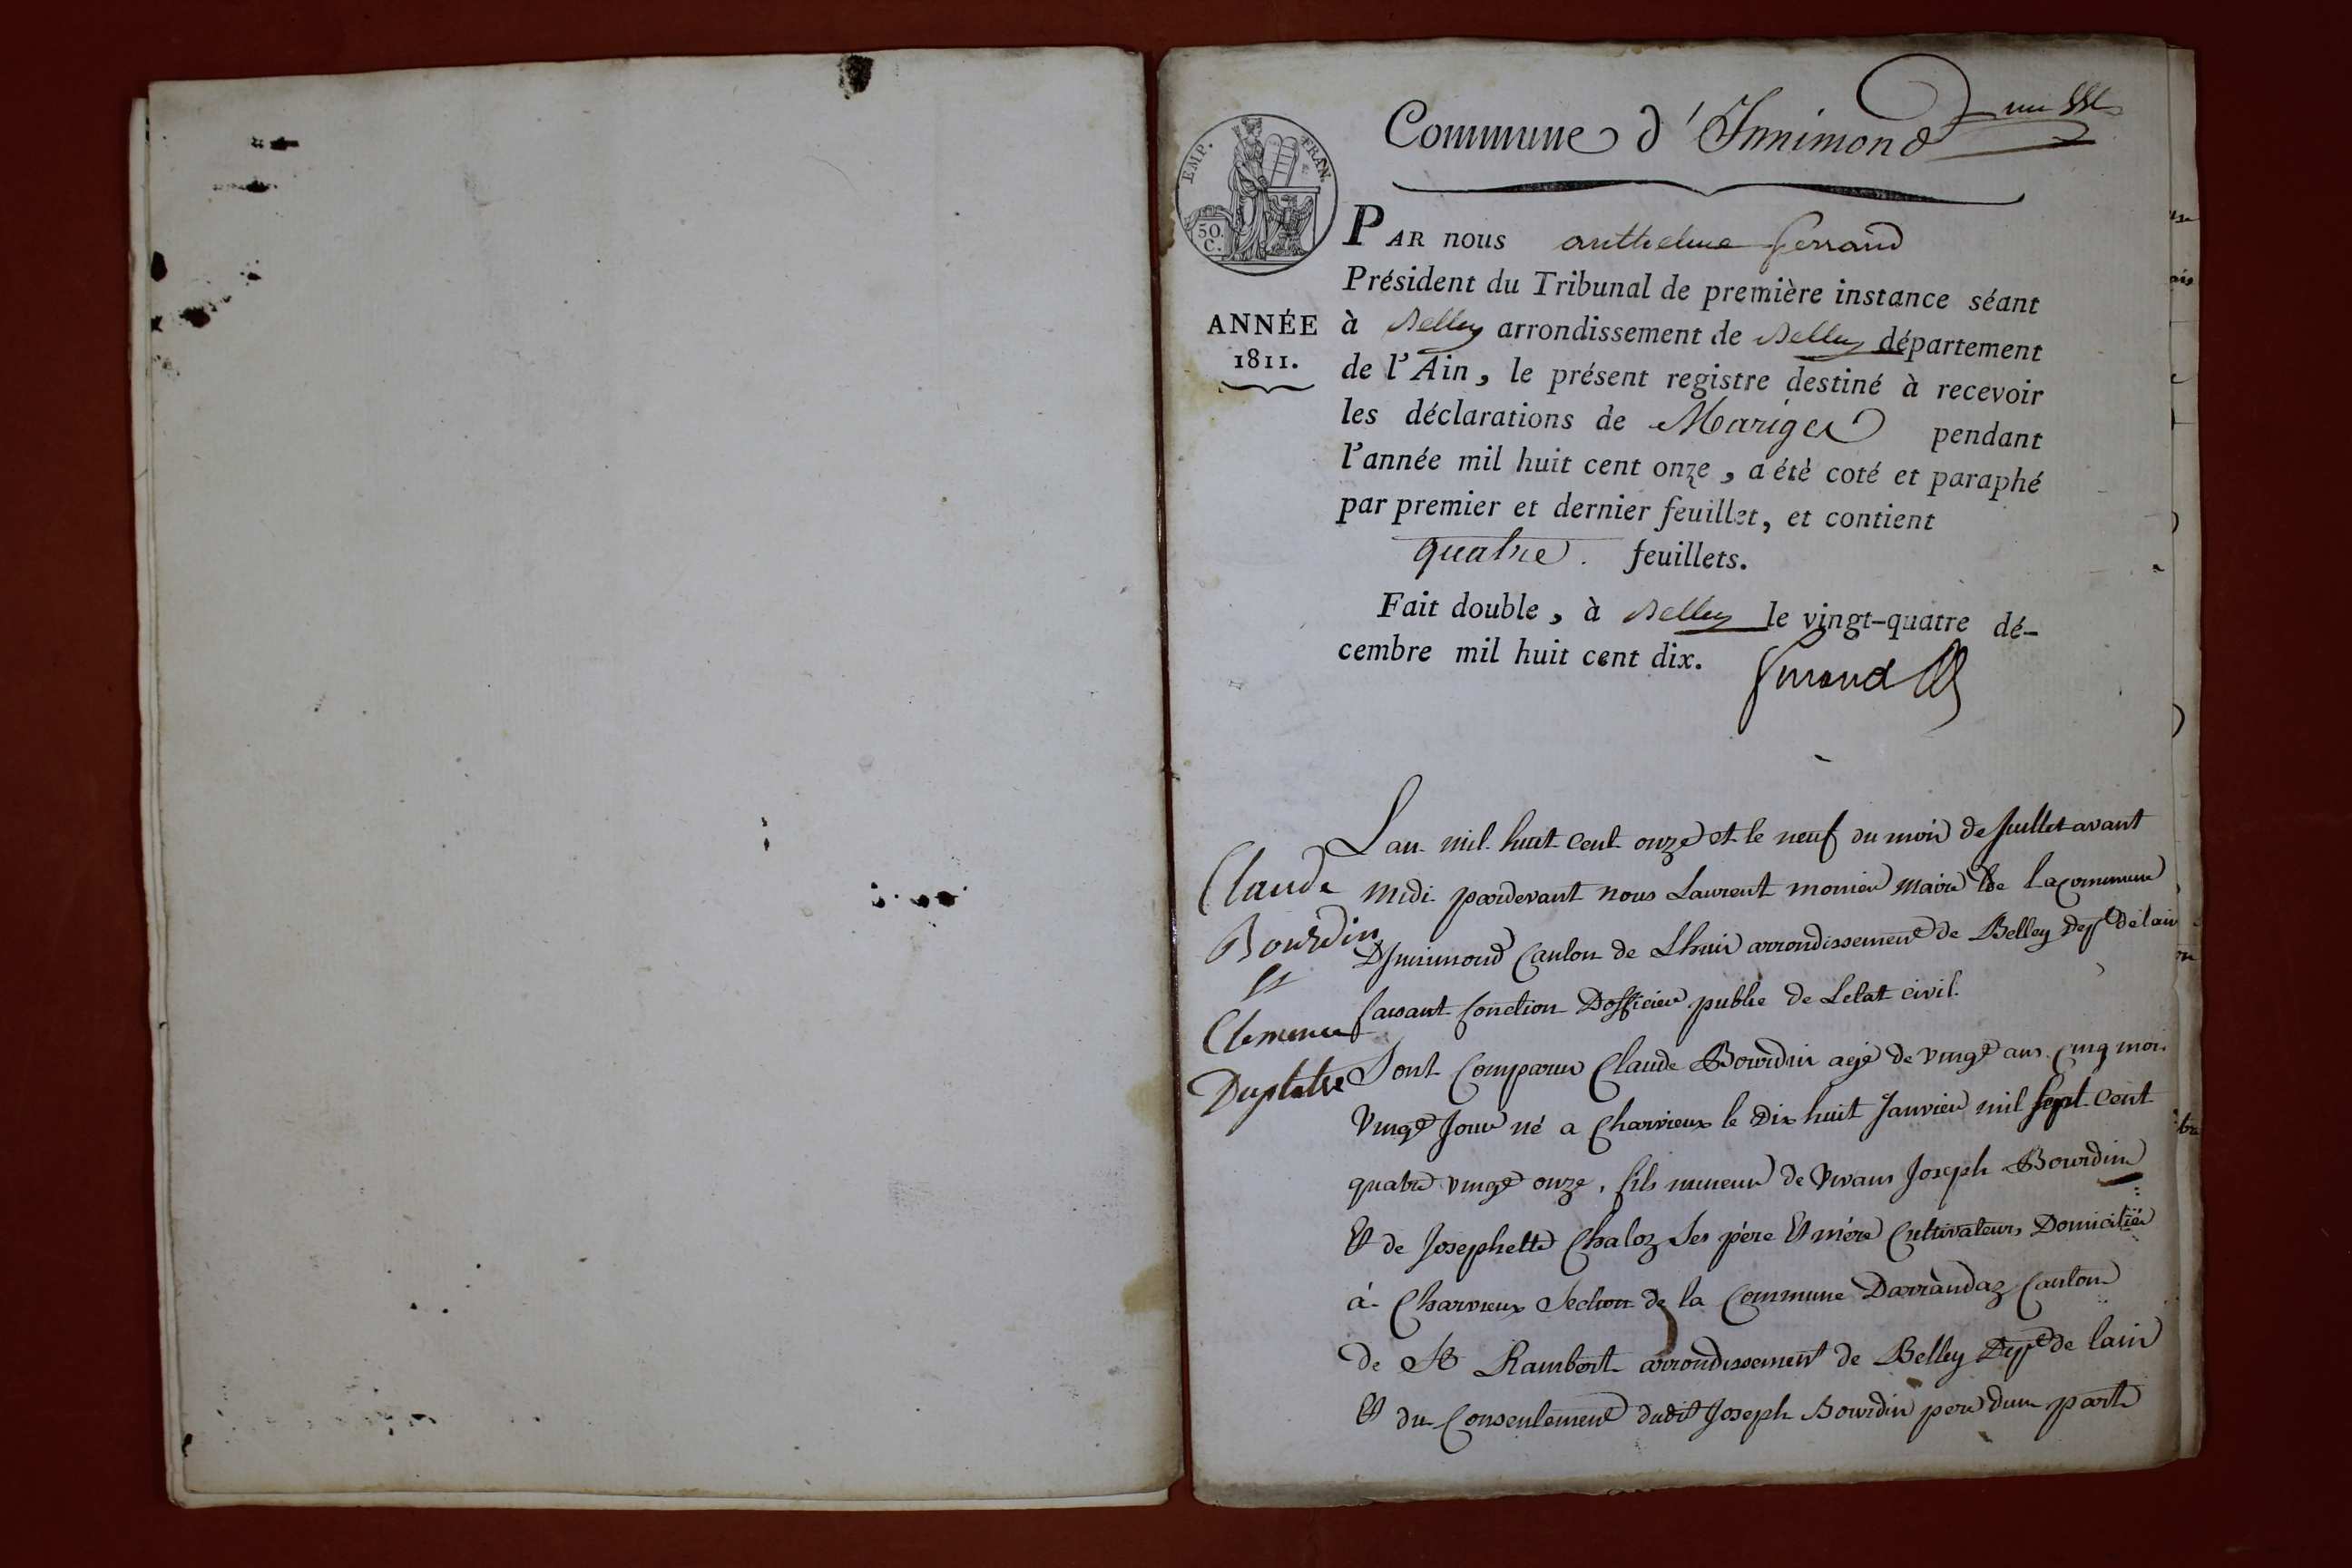 Commune d'Innimond
EMP. FRAN.
50.
C.
PAR nous anthelme ferrand
Président du Tribunal de première instance séant
ANNÉE
1811.
à Belley arrondissement de Belley département
de l'Ain, le présent registre destiné à recevoir
les déclarations de Mariges pendant
l'année mil huit cent onze, a été coté et paraphé
par premier et dernier feuillet, et contient
quatre feuillets.
Fait double, à Belley le vingt-quatre dé-
cembre mil huit cent dix.
Claude
Bourdin
et
Clemence
Duplatre
Lan mil huit cent onze et le neuf du mois de Juillet avant
midi pardevant nous Laurent monier maire de la commune
Dinnimond Canton de Lhuis arrondissement de Belley Dept de lain
faisant fonction Dofficier public de Letat civil.
Sont Comparus Claude Bourdin agé de vingt ans cinq mois
vingt Jour né a Charvieux le Dix huit Janvier mil sept cent
quatre vingt onze, fils mineur de vivans Joseph Bourdin
Et de Josephette Chaloz Ses père Et mère Cultivateurs Domiciliés
à Charvieux Section de la Commune Darrandaz Canton
de St Rambert arrondissement de Belley Dept de lain
Et du Consentement dudit Joseph Bourdin pere dune part